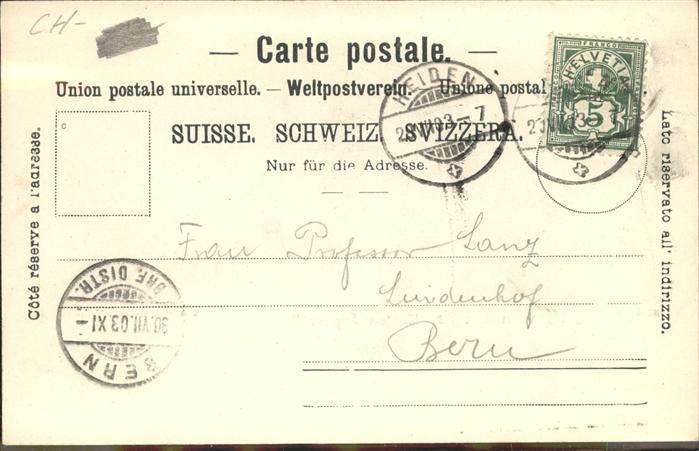 CH-
— Carte postale. —
Union postale universelle. — Weltpostverein. — Unione postal
SUISSE. SCHWEIZ. SVIZZERA.
Nur für die Adresse.
Côté réservé à l'adresse.
Lato riservato all' indirizzo.
FRANCO
HELVETIA
5
HEIDEN
VII.03. - 7
Frau Professor Lanz
Lindenhof
Bern
BRF. DISTR.
30.VII.03.XI-
BERN